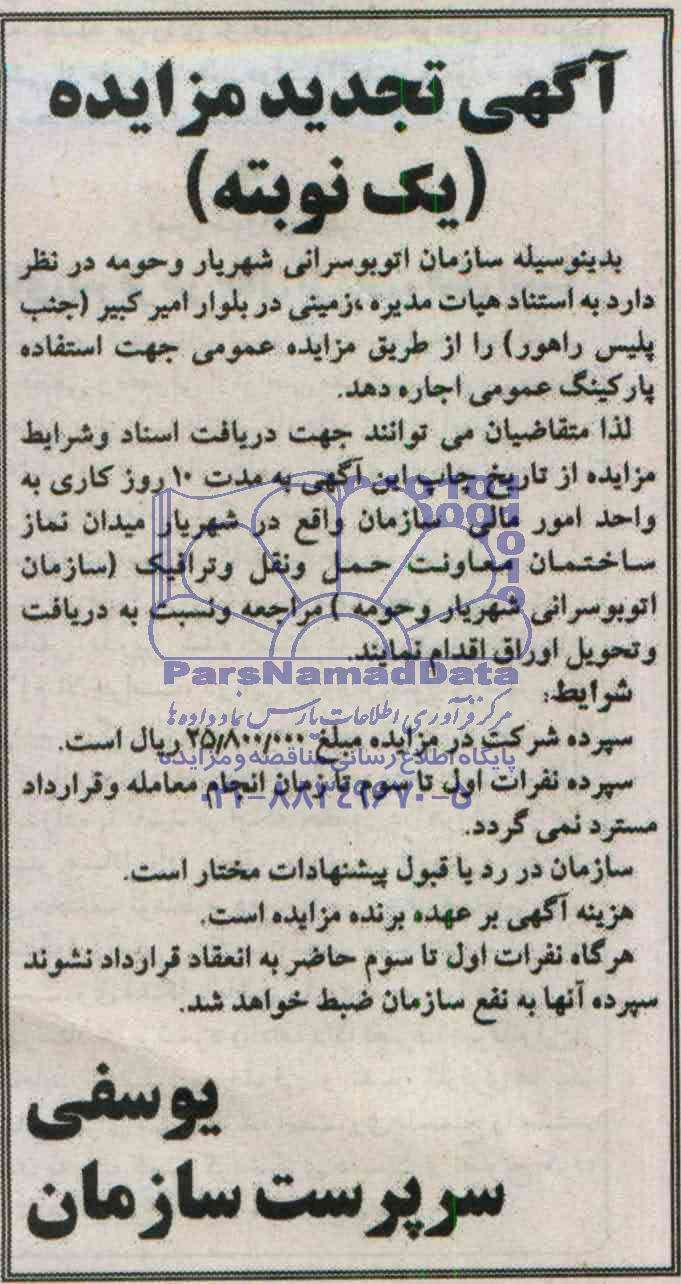 آگهی تجدید مزایده
(یک نوبته)
بدینوسیله سازمان اتوبوسرانی شهریار وحومه در نظر
دارد به استناد هیات مدیره ،زمینی در بلوار امیر کبیر (جنب
پلیس راهور) را از طریق مزایده عمومی جهت استفاده
پارکینگ عمومی اجاره دهد.
لذا متقاضیان می توانند جهت دریافت اسناد وشرایط
مزایده از تاریخ چاپ این آگهی به مدت ۱۰ روز کاری به
واحد امور مالی سازمان واقع در شهریار میدان نماز
ساختمان معاونت حمل ونقل وترافیک (سازمان
اتوبوسرانی شهریار وحومه ) مراجعه ونسبت به دریافت
وتحویل اوراق اقدام نمایند.
ParsNamadData
شرایط:
مرکز فرآوری اطلاعات پارس نماد داده ها
سپرده شرکت در مزایده مبلغ ۲۵/۸۰۰/۰۰۰ ریال است.
پایگاه اطلاع رسانی مناقصه و مزایده
سپرده نفرات اول تا سوم تا زمان انجام معامله وقرارداد
۰۲۱-۸۸۳۴۹۶۷۰-۵
مسترد نمی گردد.
سازمان در رد یا قبول پیشنهادات مختار است.
هزینه آگهی بر عهده برنده مزایده است.
هرگاه نفرات اول تا سوم حاضر به انعقاد قرارداد نشوند
سپرده آنها به نفع سازمان ضبط خواهد شد.
یوسفی
سرپرست سازمان